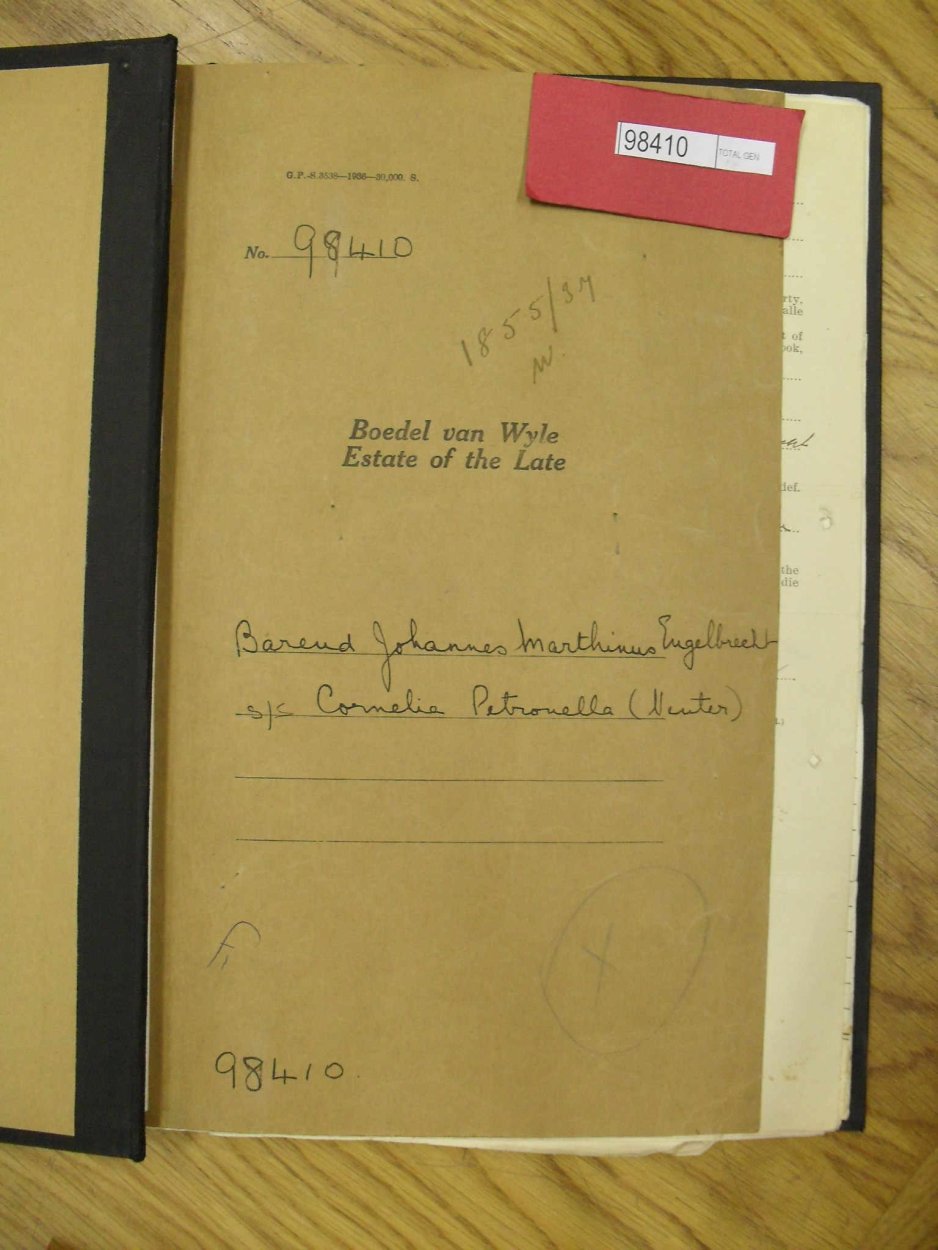 98410
TOTAL GEN
G.P.-S.3538—1936—30,000. S.
No. 98410
1855/37
Boedel van Wyle
Estate of the Late
Barend Johannes Marthinus Engelbrecht
s/s Cornelia Petronella (Venter)
X
98410
rty,
alle
t of
ook,
def.
the
die